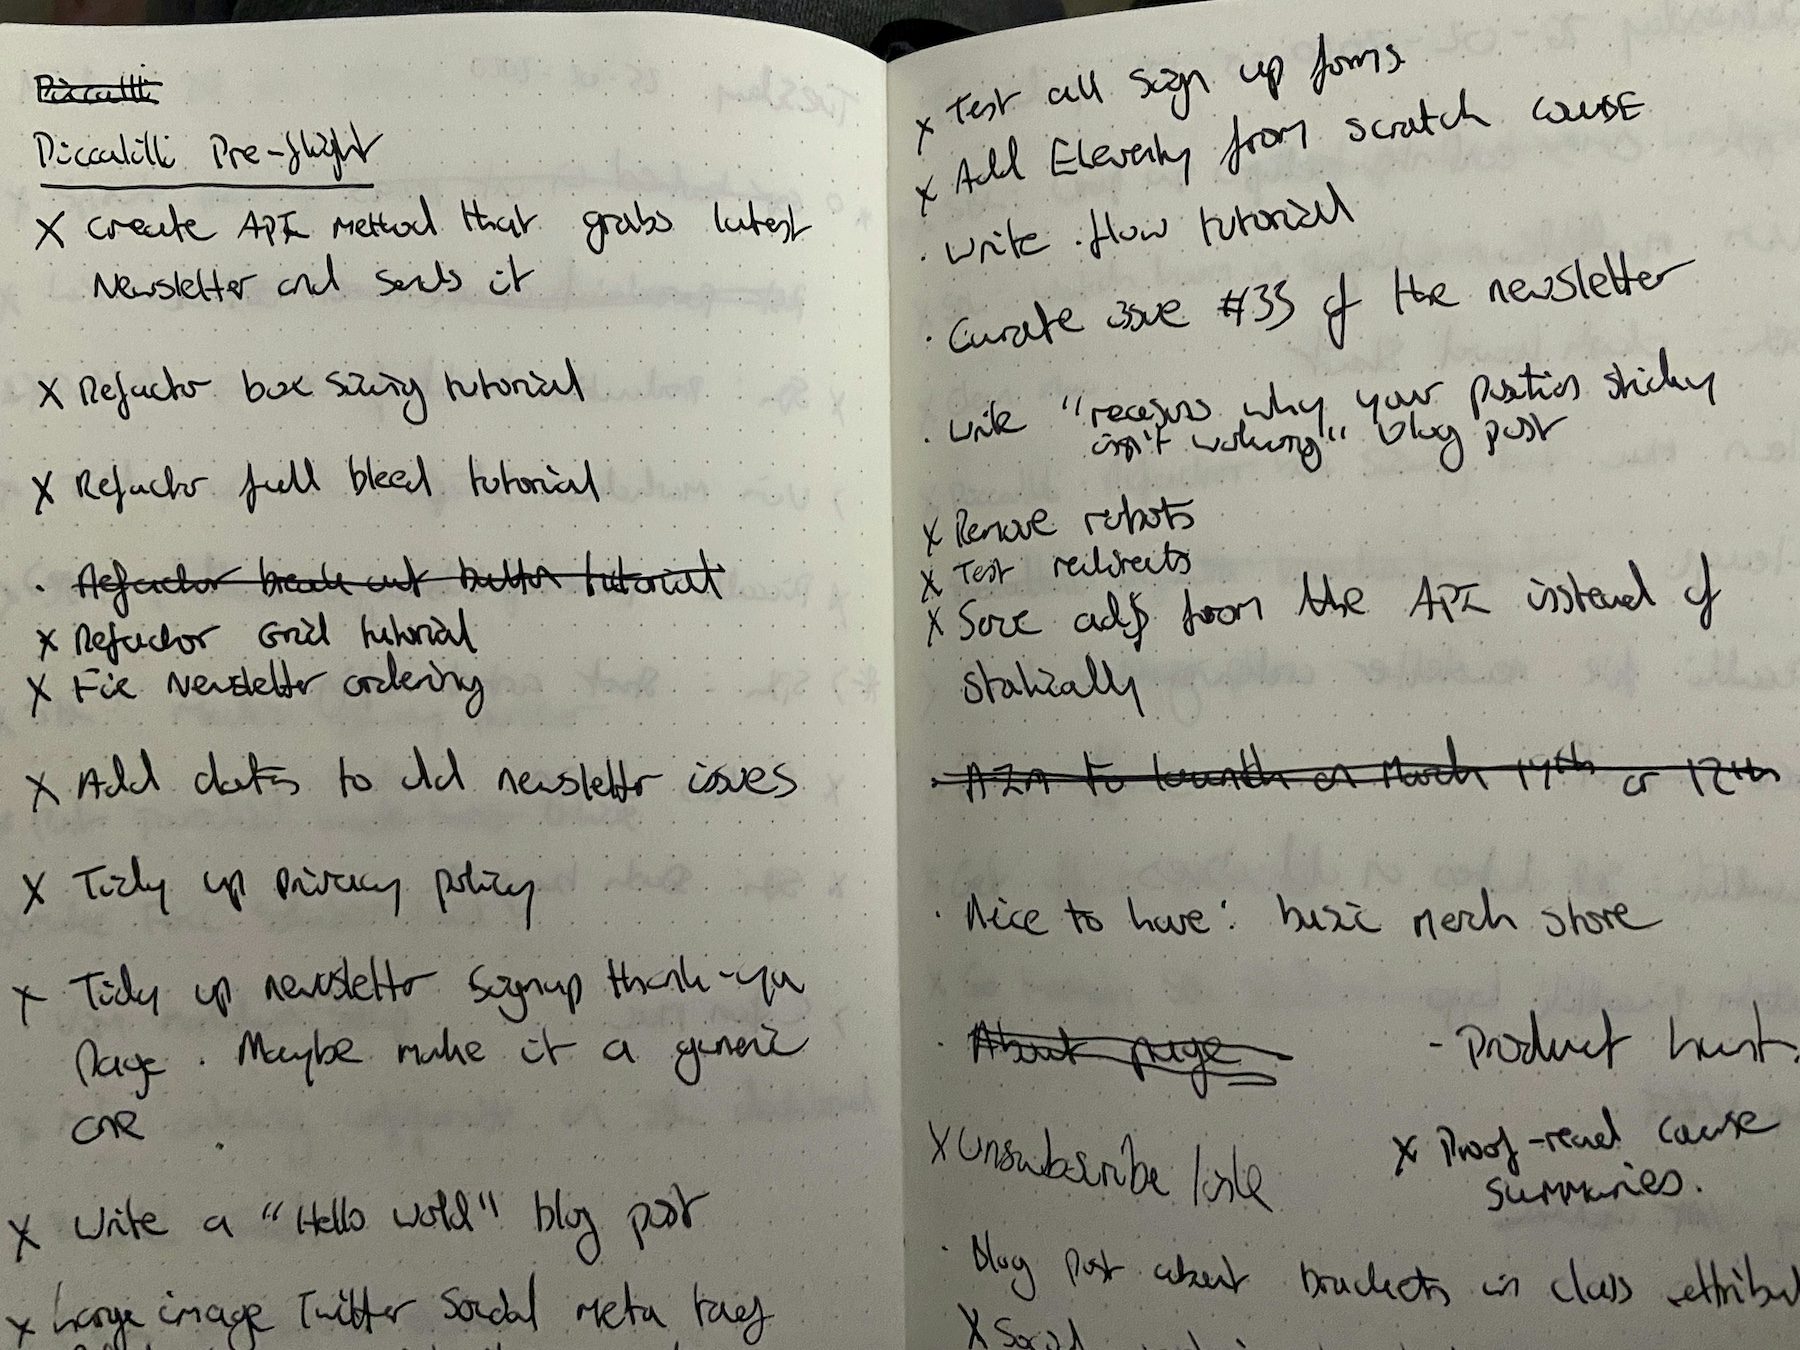 Piccalilli
Piccalilli Pre-flight
X Create API method that grabs latest
Newsletter and sends it
X Refactor box sizing tutorial
X Refactor full bleed tutorial
· Refactor break out button tutorial
X Refactor Grid tutorial
X Fix Newsletter ordering
X Add dates to old newsletter issues
X Tidy up privacy policy
X Tidy up newsletter signup thank-you
page. Maybe make it a generic
one
X Write a "Hello world" blog post
X Large image Twitter Social meta tags
X Test all sign up forms
X Add Eleventy from scratch course
· Write .flow tutorial
· Curate issue #35 of the newsletter
· Write "reasons why your position sticky
isn't working" blog post
X Remove robots
X Test redirects
X Serve ads from the API instead of
statically
· Aim to launch on March 17th or 12th
· Nice to have: basic merch store
· About page
- Product hunt
X Unsubscribe
X Proof-read course
summaries.
· Blog post about brackets in class attribu
X Social